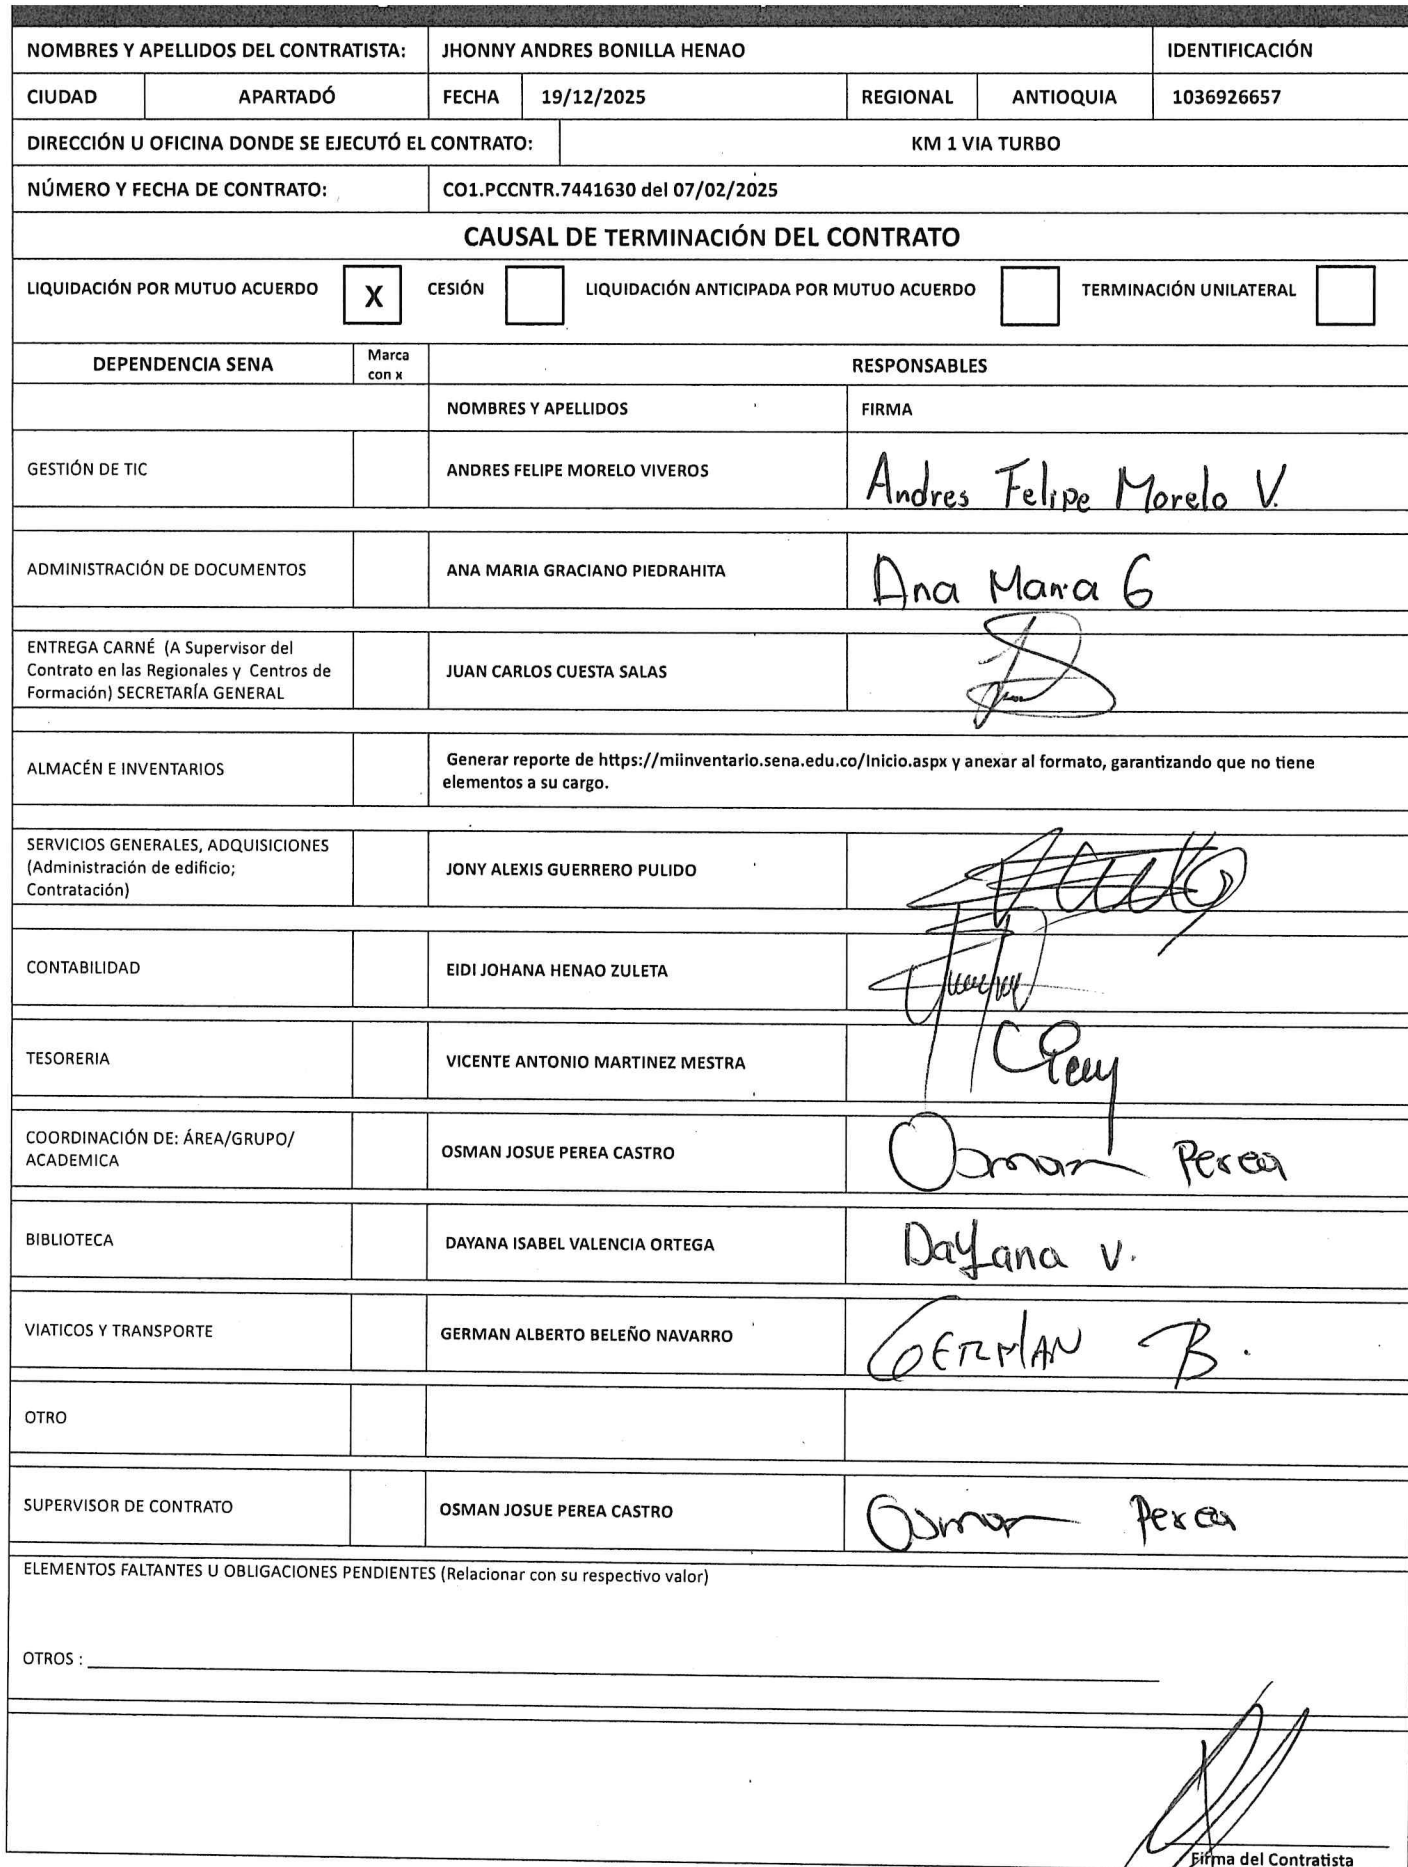 NOMBRES Y APELLIDOS DEL CONTRATISTA: JHONNY ANDRES BONILLA HENAO IDENTIFICACIÓN
CIUDAD APARTADÓ FECHA 19/12/2025 REGIONAL ANTIOQUIA 1036926657
DIRECCIÓN U OFICINA DONDE SE EJECUTÓ EL CONTRATO: KM 1 VIA TURBO
NÚMERO Y FECHA DE CONTRATO: CO1.PCCNTR.7441630 del 07/02/2025
CAUSAL DE TERMINACIÓN DEL CONTRATO
LIQUIDACIÓN POR MUTUO ACUERDO X CESIÓN LIQUIDACIÓN ANTICIPADA POR MUTUO ACUERDO TERMINACIÓN UNILATERAL
DEPENDENCIA SENA Marca con x RESPONSABLES
NOMBRES Y APELLIDOS FIRMA
GESTIÓN DE TIC ANDRES FELIPE MORELO VIVEROS Andres Felipe Morelo V.
ADMINISTRACIÓN DE DOCUMENTOS ANA MARIA GRACIANO PIEDRAHITA Ana Maria G
ENTREGA CARNÉ (A Supervisor del
Contrato en las Regionales y Centros de
Formación) SECRETARÍA GENERAL
JUAN CARLOS CUESTA SALAS
ALMACÉN E INVENTARIOS
Generar reporte de https://miinventario.sena.edu.co/Inicio.aspx y anexar al formato, garantizando que no tiene
elementos a su cargo.
SERVICIOS GENERALES, ADQUISICIONES
(Administración de edificio;
Contratación)
JONY ALEXIS GUERRERO PULIDO
CONTABILIDAD EIDI JOHANA HENAO ZULETA
TESORERIA VICENTE ANTONIO MARTINEZ MESTRA
COORDINACIÓN DE: ÁREA/GRUPO/
ACADEMICA
OSMAN JOSUE PEREA CASTRO Osman Perea
BIBLIOTECA DAYANA ISABEL VALENCIA ORTEGA Dayana V.
VIATICOS Y TRANSPORTE GERMAN ALBERTO BELEÑO NAVARRO GERMAN B.
OTRO
SUPERVISOR DE CONTRATO OSMAN JOSUE PEREA CASTRO Osman Perea
ELEMENTOS FALTANTES U OBLIGACIONES PENDIENTES (Relacionar con su respectivo valor)
OTROS :
Firma del Contratista